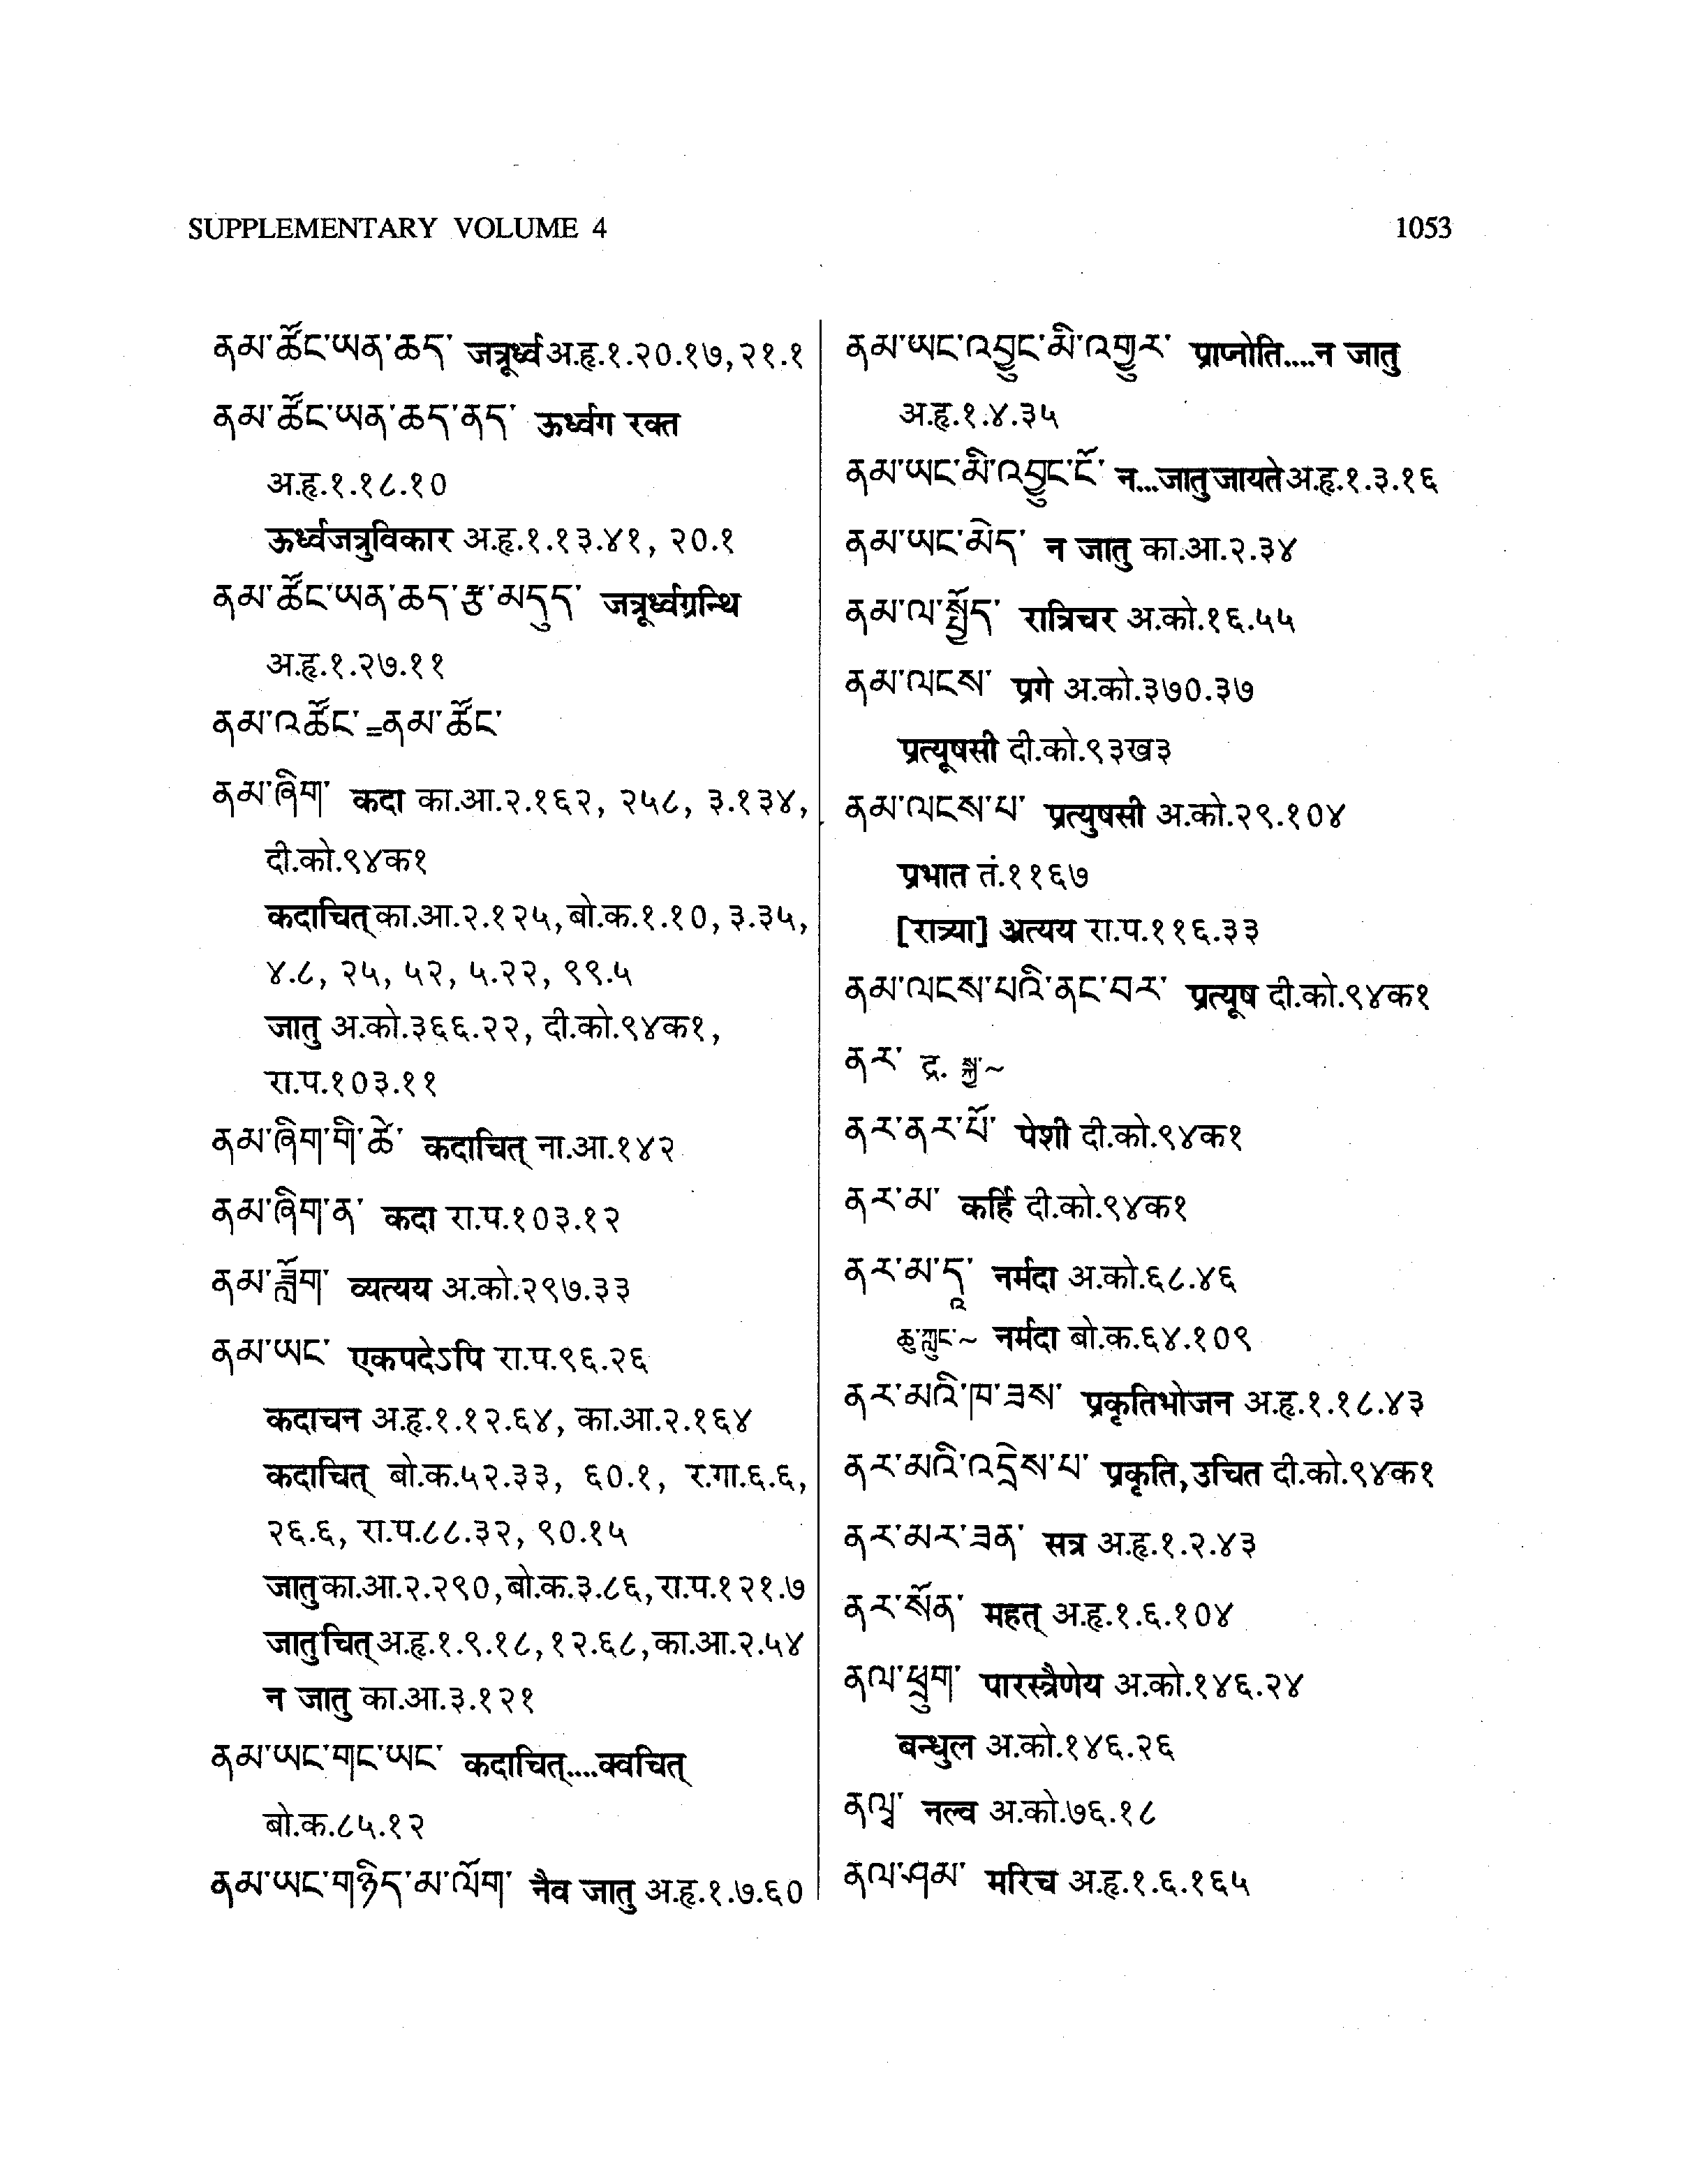 SUPPLEMENTARY VOLUME 4
1053
ནམ་ཚོང་ཡན་ཆད་ जत्रूर्ध्व अ.हृ.१.२०.१७, २१.१
ནམ་ཚོང་ཡན་ཆད་ནད་ ऊर्ध्वग रक्त
अ.हृ.१.१८.१०
ऊर्ध्वजत्रुविकार अ.हृ.१.१३.४१, २०.१
ནམ་ཚོང་ཡན་ཆད་རྩ་མདུད་ जत्रूर्ध्वग्रन्थि
अ.हृ.१.२७.११
ནམ་འཚོང་=ནམ་ཚོང་
ནམ་ཞིག་ कदा का.आ.२.१६२, २५८, ३.१३४,
दी.को.९४क१
कदाचित् का.आ.२.१२५, बो.क.१.१०, ३.३५,
४.८, २५, ५२, ५.२२, ९९.५
जातु अ.को.३६६.२२, दी.को.९४क१,
रा.प.१०३.११
ནམ་ཞིག་གི་ཚེ་ कदाचित् ना.आ.१४२
ནམ་ཞིག་ན་ कदा रा.प.१०३.१२
ནམ་ཟློག་ व्यत्यय अ.को.२९७.३३
ནམ་ཡང་ एकपदेऽपि रा.प.९६.२६
कदाचन अ.हृ.१.१२.६४, का.आ.२.१६४
कदाचित् बो.क.५२.३३, ६०.१, र.गा.६.६,
२६.६, रा.प.८८.३२, ९०.१५
जातु का.आ.२.२९०, बो.क.३.८६, रा.प.१२१.७
जातुचित् अ.हृ.१.९.१८, १२.६८, का.आ.२.५४
न जातु का.आ.३.१२१
ནམ་ཡང་གང་ཡང་ कदाचित्....क्वचित्
बो.क.८५.१२
ནམ་ཡང་གཉིད་མ་ལོག་ नैव जातु अ.हृ.१.७.६०
ནམ་ཡང་འབྱུང་མི་འགྱུར་ प्राप्नोति....न जातु
अ.हृ.१.४.३५
ནམ་ཡང་མི་འབྱུང་ངོ་ न...जातु जायते अ.हृ.१.३.१६
ནམ་ཡང་མེད་ न जातु का.आ.२.३४
ནམ་ལ་སྤྱོད་ रात्रिचर अ.को.१६.५५
ནམ་ལངས་ प्रगे अ.को.३७०.३७
प्रत्यूषसी दी.को.९३ख३
ནམ་ལངས་པ་ प्रत्युषसी अ.को.२९.१०४
प्रभात तं.११६७
[रात्र्या] अत्यय रा.प.११६.३३
ནམ་ལངས་པའི་ནང་བར་ प्रत्यूष दी.को.९४क१
ནར་ द्र. སྐྱ་~
ནར་ནར་པོ་ पेशी दी.को.९४क१
ནར་མ་ कर्हि दी.को.९४क१
ནར་མ་དཱ་ नर्मदा अ.को.६८.४६
ཆུ་ཀླུང་~ नर्मदा बो.क.६४.१०९
ནར་མའི་ཁ་ཟས་ प्रकृतिभोजन अ.हृ.१.१८.४३
ནར་མའི་འདྲེས་པ་ प्रकृति, उचित दी.को.९४क१
ནར་མར་ཟན་ सत्र अ.हृ.१.२.४३
ནར་སོན་ महत् अ.हृ.१.६.१०४
ནལ་ཕྲུག་ पारस्त्रैणेय अ.को.१४६.२४
बन्धुल अ.को.१४६.२६
ནལྦ་ नल्व अ.को.७६.१८
ནལ་ཤམ་ मरिच अ.हृ.१.६.१६५